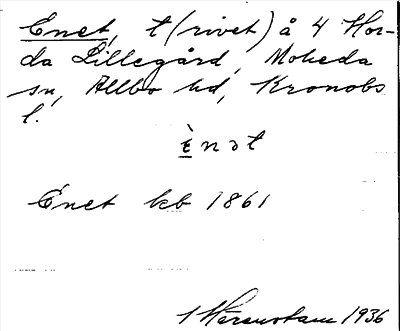 Enet, t(rivet) å 4 Hor-
da Lillegård, Moheda
sn, Allbo hd, Kronobs
l.
è̱nət
Énet kb 1861
1936